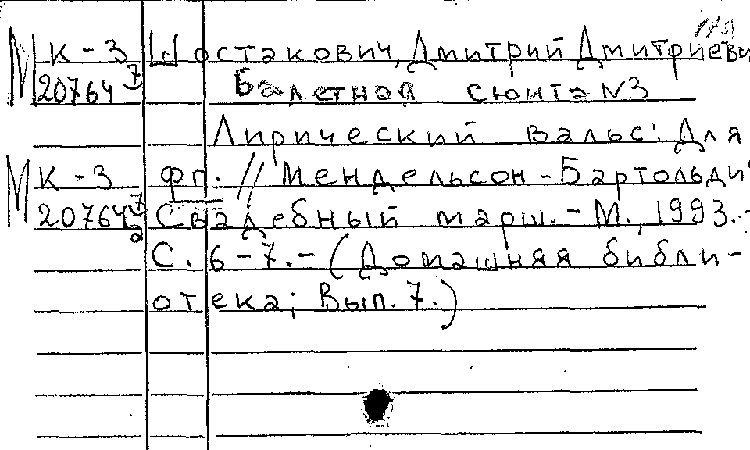 МК-3 Шостакович, Дмитрий Дмитриеви
207647 Балетная сюита N3
Лирический вальс: Для
МК-3 фп. // Мендельсон-Бартольди
207647 Свадебный марш. - М., 1993. -
С. 6-7. - (Домашняя библи-
отека; Вып. 7.)